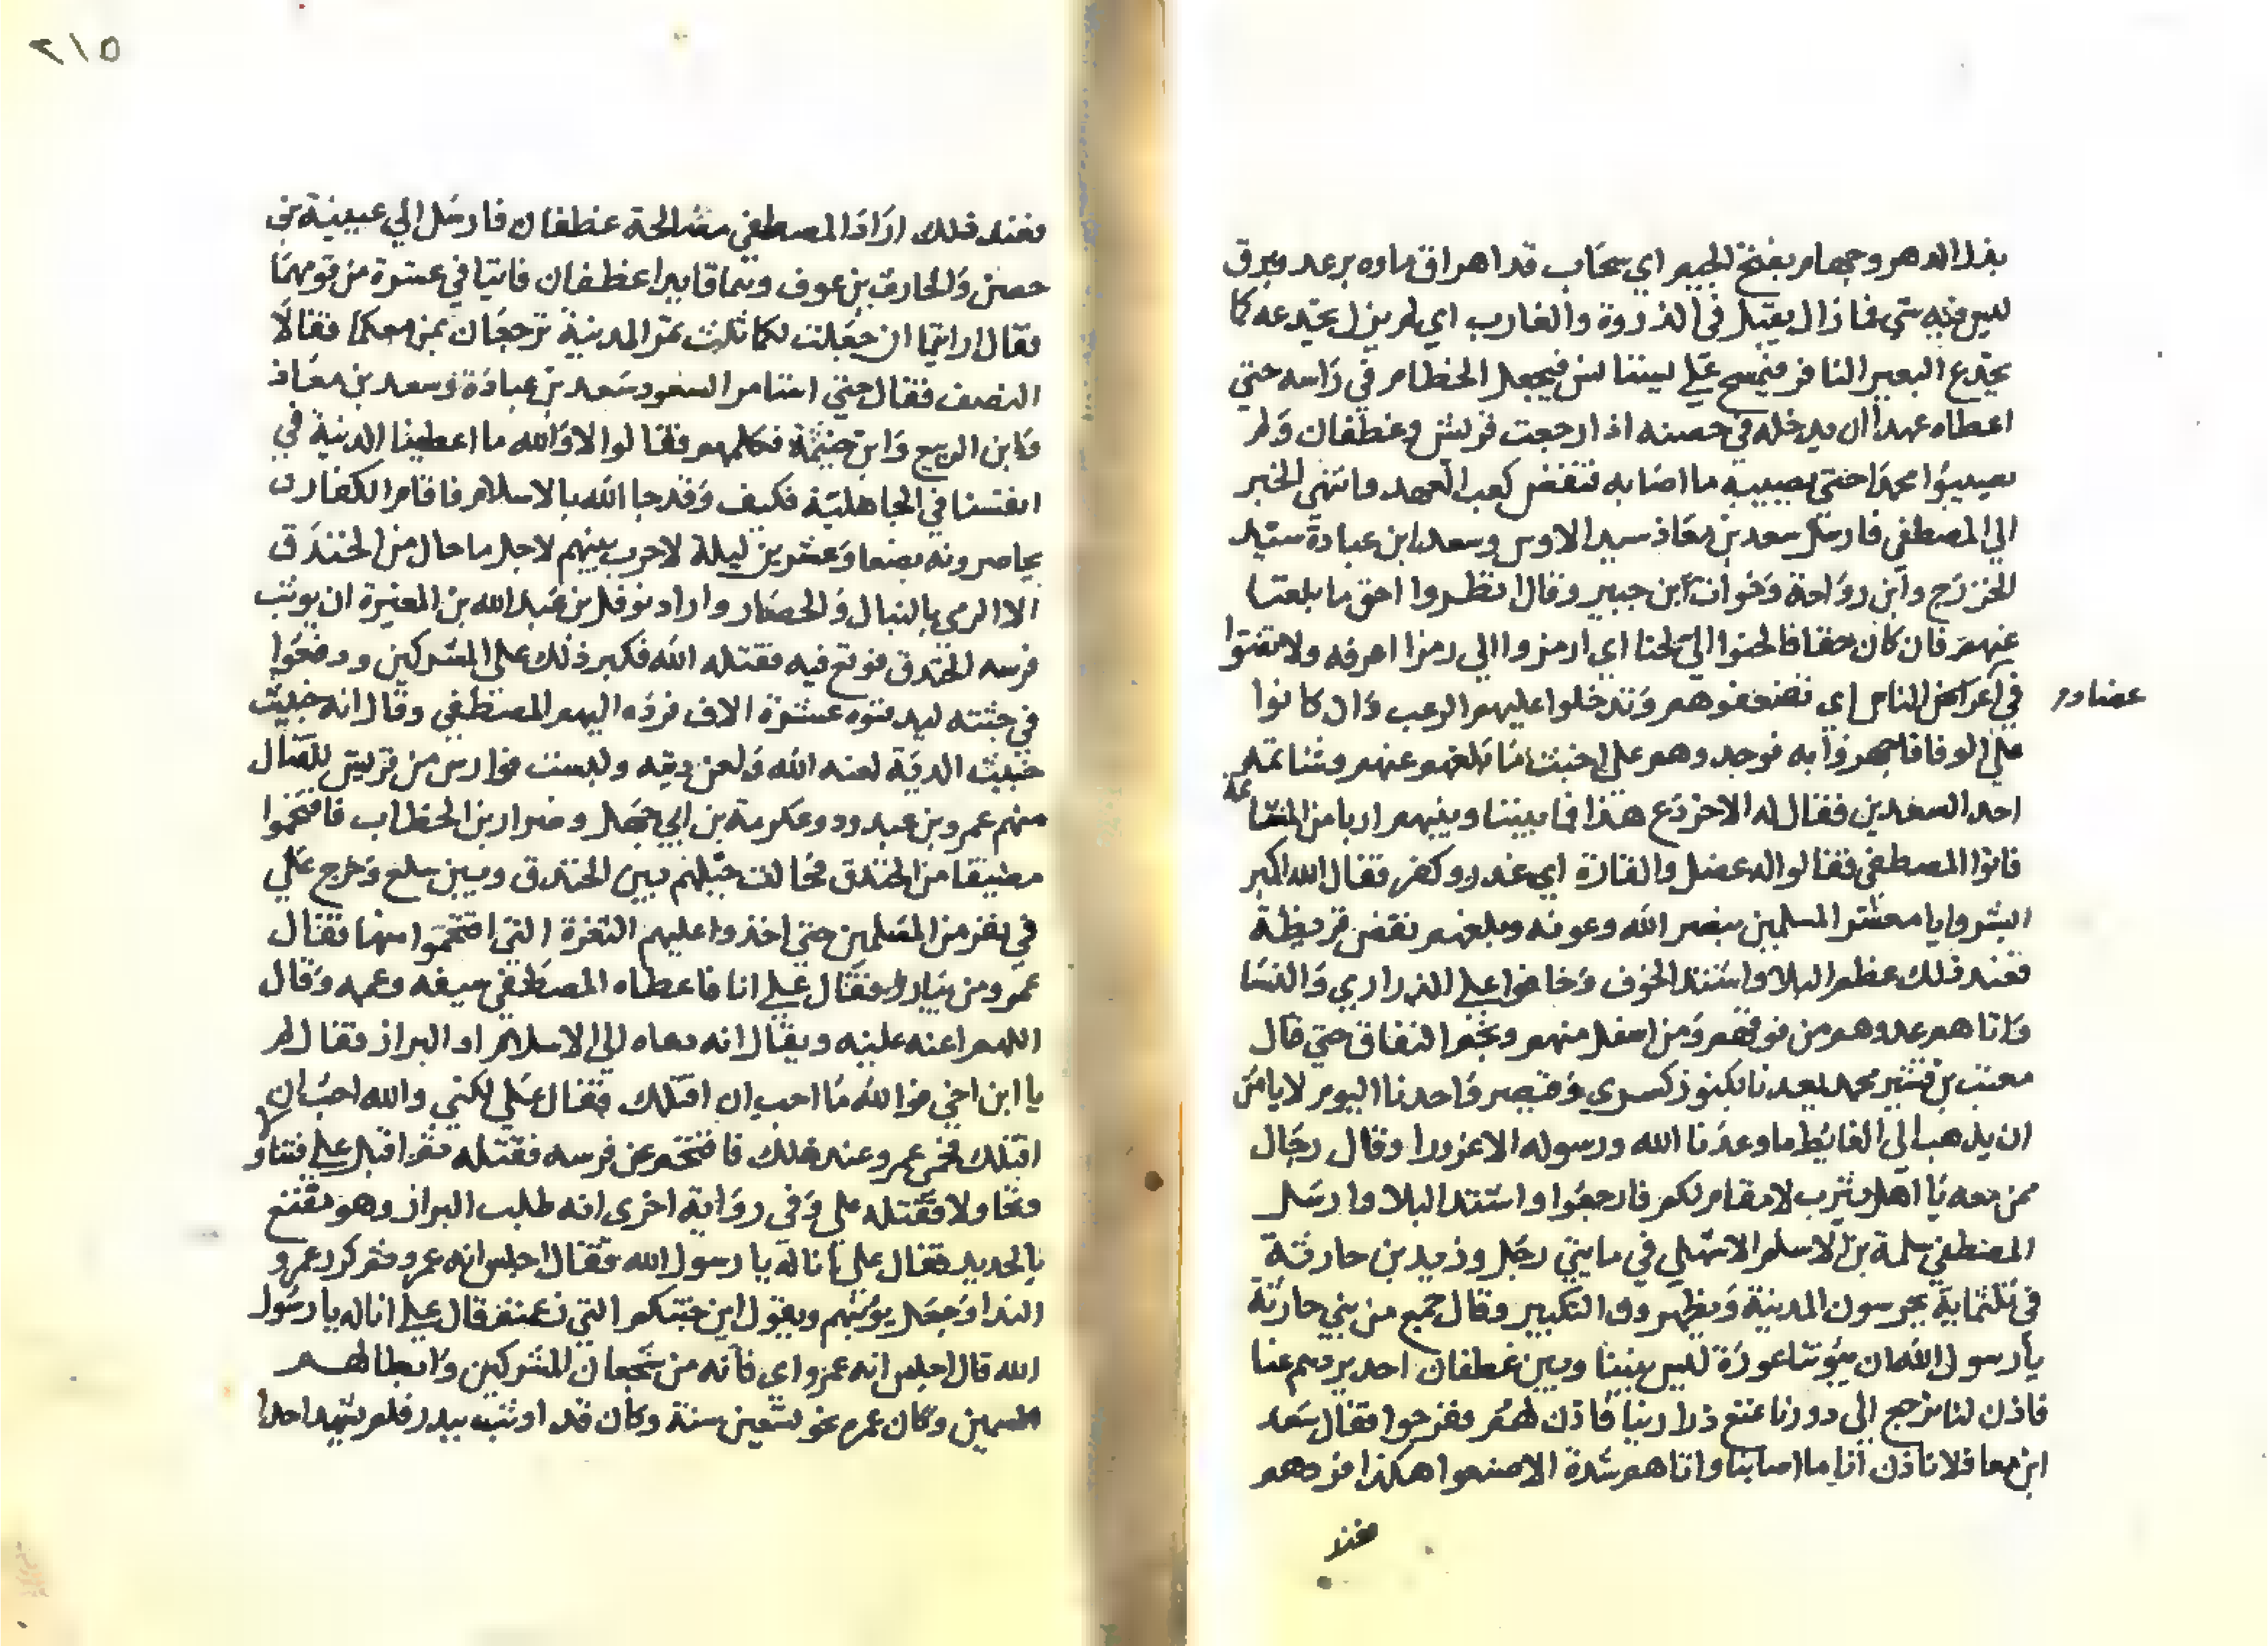 بذل الدهر وجهام بفتح الجيم اي سحاب قد اهراق ماوه يرعد ويبرق
ليس فيه شي فما زال يفتل في الذروة والغارب اي لم يزل يخدعه كما
يخدع البعير النافر فيمسح علي ليجعل الخطام في راسه حتي
اعطاه عهدا ان يدخله في حصنه اذا رجعت قريش وغطفان ولم
يصيبوا محمدا حتي يصيبه ما اصابه فنقض كعب العهد وانتهي الخبر
الي المصطفي فارسل سعد بن معاذ سيد الاوس وسعد ابن عبادة سيد
الخزرج وابن رواحة وخوات ابن جبير وقال انظروا احق ما بلغنا
عنهم فان كان حقا فالحنوا الي لحنا اي ارمزوا الي رمزا اعرفه ولا تفتوا
في اعضاد الناس اي تضعفوهم وتدخلوا عليهم الرعب وان كانوا
علي الوفا فاجهروا به فوجدوهم علي اخبث ما بلغهم عنهم وشاتمه
احد السعدين فقال له الاخر دع هذا فما بيننا وبينهم اربا من المشاتمة
فاتوا المصطفي فقالوا له عضل والقارة اي غدروا كغدر فقال الله اكبر
ابشروا يا معشر المسلمين بنصر الله وعونه وبلغهم نقض قريظة
فعند ذلك عظم البلا واشتد الخوف وخافوا علي الذراري والنسا
واتاهم عدوهم من فوقهم ومن اسفل منهم ونجم النفاق حتي قال
معتب بن قشير محمد يعدنا بكنوز كسري وقيصر واحدنا اليوم لا يامن
ان يذهب الي الغايط ما وعدنا الله ورسوله الا غرورا وقال رجال
ممن معه يا اهل يثرب لا مقام لكم فارجعوا واشتد البلا وارسل
المصطفي سلمة بن الاسلم الاشهلي في مايتي رجل وزيد بن حارثة
في ثلثماية يحرسون المدينة ويظهرون التكبير وقال جمع من بني حارثة
يا رسول الله ان بيوتنا عورة ليس بيننا وبين غطفان احد يردهم عنا
فاذن لنا نرجع الي دورنا نمنع ذرارينا فاذن لهم ففرحوا فقال سعد
ابن معاذ لا تاذن انا ما اصابنا واياهم شدة الا صنعوا هكذا فردهم
فعند
عضاد
٢١٥
فعند ذلك اراد المصطفي مصالحة غطفان فارسل الي عيينة بن
حصن والحارث بن عوف وهما قايدا غطفان فاتيا في عشرة من قومهما
فقال ارايتما ان جعلت لكما ثلث تمر المدينة ترجعان بمن معكما فقالا
النصف فقال حتي استامر السعود سعد بن عبادة وسعد بن معاذ
وابن الربيع وابن خيثمة فكلمهم فقالوا لا والله ما اعطينا الدنية في
انفسنا في الجاهلية فكيف وقد جا الله بالاسلام فاقام الكفار
يحاصرونه بضعا وعشرين ليلة لا حرب بينهم لاجل ما حال من الخندق
الا الرمي بالنبال والحصار واراد نوفل بن عبد الله بن المغيرة ان يوثب
فرسه الخندق فوقع فيه فقتله الله فكبر ذلك علي المشركين ودفعوا
في جثته ليدفنوه عشرة الاف فرده اليهم المصطفي وقال انه خبيث
خبيث الدية لعنه الله ولعن ديته ولبست فوارس من قريش للقتال
منهم عمرو بن عبد ود وعكرمة بن ابي جهل وضرار بن الخطاب فاقتحموا
مضيقا من الخندق فجالت خيلهم بين الخندق وبين سلع وخرج علي
في نفر من المسلمين حتي اخذوا عليهم الثغرة التي اقتحموا منها فقال
عمرو من يبارز فقال علي انا فاعطاه المصطفي سيفه وعممه وقال
اللهم اعنه عليه ويقال انه دعاه الي الاسلام او البراز فقال لم
يا ابن اخي فوالله ما احب ان اقتلك فقال علي لكني والله احب ان
اقتلك فحمي عمرو عند ذلك فاقتحم عن فرسه فعقره ثم اقبل علي فتنازلا
وتجاولا فقتله علي وفي رواية اخري انه طلب البراز وهو مقنع
بالحديد فقال علي انا له يا رسول الله فقال اجلس انه عمرو ثم كرر عمرو
الندا وجعل يونبهم ويقول اين جنتكم التي تزعمون فقال علي انا له يا رسول
الله قال اجلس انه عمرو اي فانه من شجعان المشركين وابطالهم
المسمين وكان عمره نحو تسعين سنة وكان قد اوثب ببدر فلم يشهد احدا